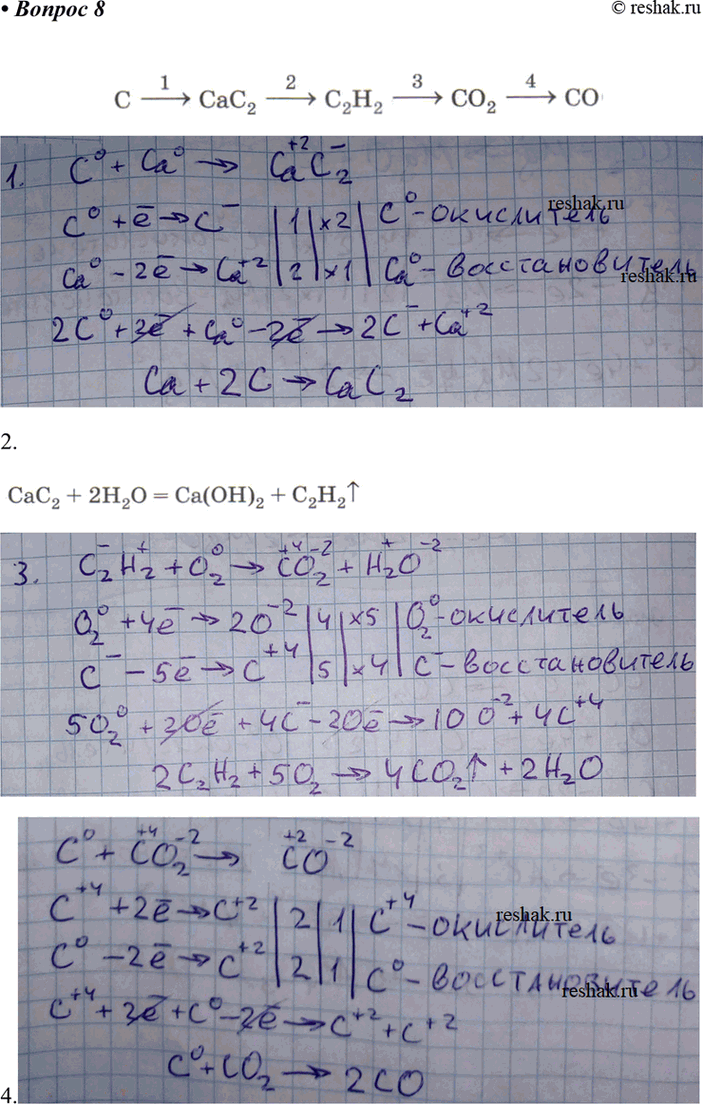 • Вопрос 8 © reshak.ru
C —1→ CaC₂ —2→ C₂H₂ —3→ CO₂ —4→ CO
1. C⁰ + Ca⁰ → Ca⁺²C₂⁻
C⁰ + ē → C⁻ | 1 | ×2 | C⁰ - окислитель
reshak.ru
Ca⁰ - 2ē → Ca⁺² | 2 | ×1 | Ca⁰ - восстановитель
reshak.ru
2C⁰ + 2ē + Ca⁰ - 2ē → 2C⁻ + Ca⁺²
Ca + 2C → CaC₂
2.
CaC₂ + 2H₂O = Ca(OH)₂ + C₂H₂↑
3. C₂⁻H₂⁺ + O₂⁰ → C⁺⁴O₂⁻² + H₂⁺O⁻²
O₂⁰ + 4ē → 2O⁻² | 4 | ×5 | O₂⁰ - окислитель
C⁻ - 5ē → C⁺⁴ | 5 | ×4 | C⁻ - восстановитель
5O₂⁰ + 20ē + 4C⁻ - 20ē → 10O⁻² + 4C⁺⁴
2C₂H₂ + 5O₂ → 4CO₂↑ + 2H₂O
C⁰ + C⁺⁴O₂⁻² → C⁺²O⁻²
C⁺⁴ + 2ē → C⁺² | 2 | 1 | C⁺⁴ - окислитель
reshak.ru
C⁰ - 2ē → C⁺² | 2 | 1 | C⁰ - восстановитель
reshak.ru
C⁺⁴ + 2ē + C⁰ - 2ē → C⁺² + C⁺²
C⁰ + CO₂ → 2CO
4.